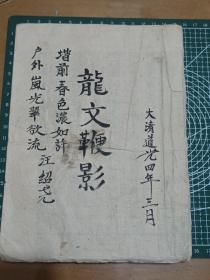 大清道光四年三月
龍文鞭影
堦前春色濃如許
户外嵐光翠欲流 汪紹